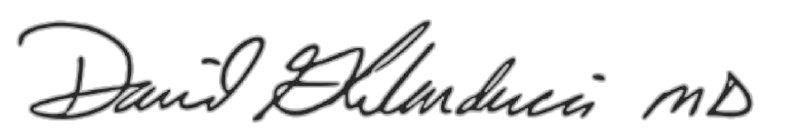 David Ghilarducci MD